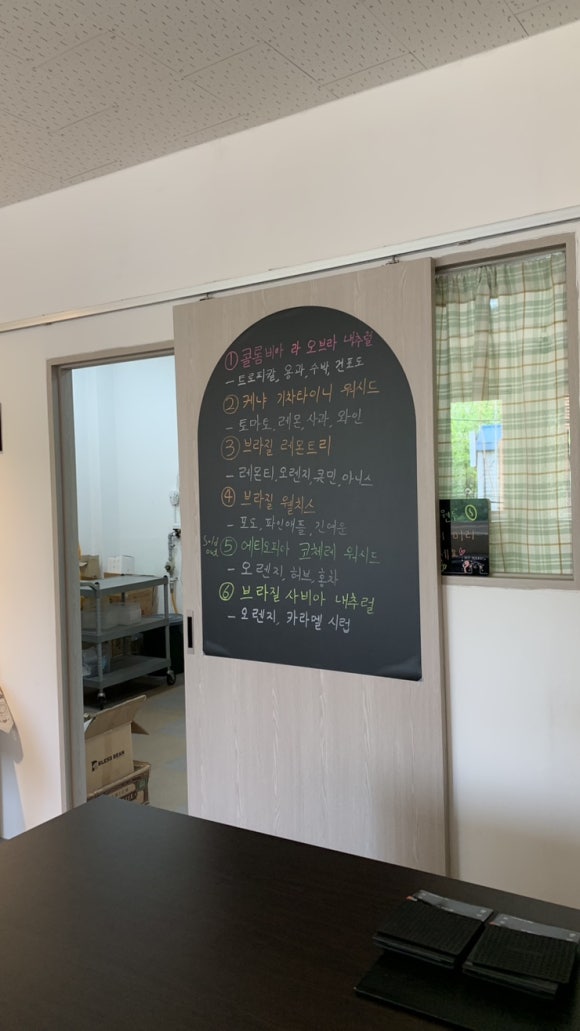 ① 콜롬비아 라 오브라 내추럴
- 트로피칼, 용과, 수박, 건포도
② 케냐 기차타이니 워시드
- 토마토, 레몬, 사과, 와인
③ 브라질 레몬트리
- 레몬티, 오렌지, 큐민, 아니스
④ 브라질 월치스
- 포도, 파인애플, 긴여운
Sold out ⑤ 에티오피아 코체레 워시드
- 오렌지, 허브, 홍차
⑥ 브라질 사비아 내추럴
- 오렌지, 카라멜 시럽
BLESS BEAN